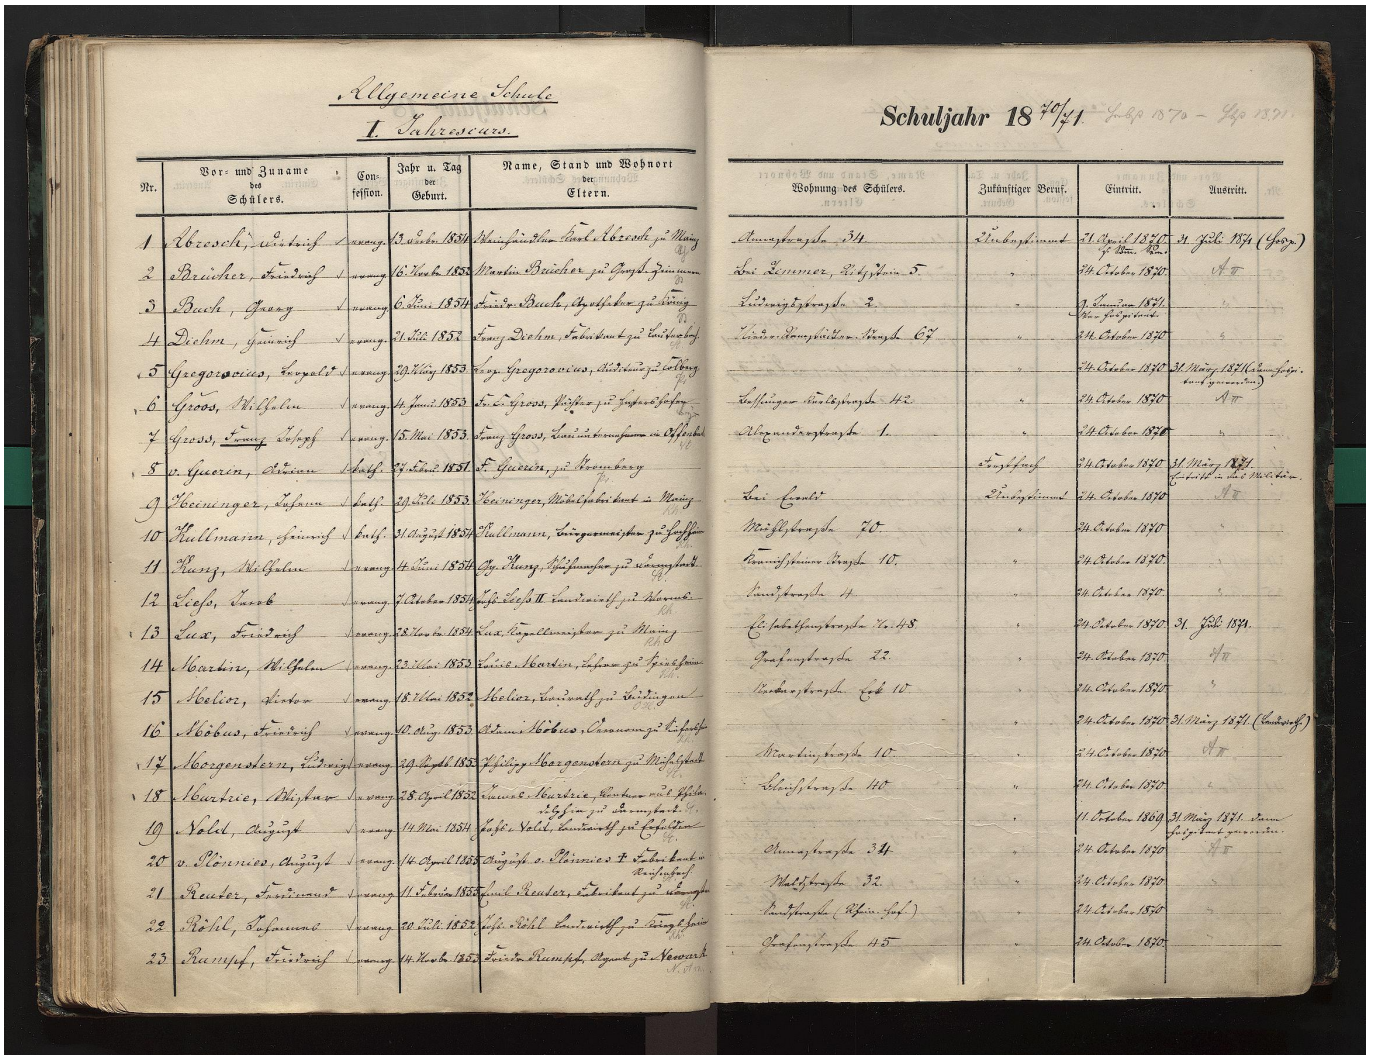 Allgemeine Schule
I. Jahrescurs.
Nr.
Vor- und Zuname
des
Schülers.
Con-
fession.
Jahr u. Tag
der
Geburt.
Name, Stand und Wohnort
der
Eltern.
1 Abresch, Dietrich evang. 13. Decbr. 1854 Weinhändler Karl Abresch zu Mainz
2 Brücher, Friedrich evang. 16. Novbr. 1852 Martin Brücher zu Groß-Zimmern
3 Buch, Georg evang. 6. Juni 1854 Friedr. Buch, Apotheker zu König
4 Diehm, Heinrich evang. 21. Juli 1852 Franz Diehm, Fabrikant zu Lauterbach
5 Gregorovius, Leopold evang. 29. März 1853 Leop. Gregorovius, Auditeur zu Colberg
6 Groos, Wilhelm evang. 4. Janu. 1853 Fr. C. Gross, Pächter zu
7 Gross, Franz Joseph evang. 15. Mai 1853. Franz Gross, Bauunternehmer in Offenbach
8 v. Guerin, Adrian kath. 27. Febru. 1851. F. Guerin, zu Stromberg
9 Heininger, Johann kath. 29. Juli 1853. Heininger, Möbelfabrikant in Mainz
10 Kullmann, Heinrich kath. 31. August 1854 Kullmann, Bürgermeister zu
11 Kunz, Wilhelm evang. 4. Juni 1854 Gg. Kunz, Schuhmacher zu Darmstadt
12 Liess, Jacob evang. 7. October 1854 Johs. Liess II Landwirth zu Worms.
13 Lux, Friedrich evang. 28. Novbr. 1854 Lux, Kapellmeister zu Mainz
14 Martin, Wilhelm evang. 23. Mai 1853. Louis Martin, Lehrer zu
15 Melior, Victor evang. 18. Mai 1852 Melior, Baurath zu Büdingen
16 Möbus, Friedrich evang. 10. Aug. 1853. Adam Möbus, Oeconom zu
17 Morgenstern, Ludwig evang. 29. Septb. 1852 Philipp Morgenstern zu Michelstadt
18 Murtrie, Mister evang. 28. April 1852 James Murtrie, Rentner aus Phila-
delphia zu Darmstadt.
19 Nold, August evang. 14 Mai 1854 Johs. Nold, Landwirth zu Erfelden
20 v. Plönnies, August evang. 14. April 1855 August v. Plönnies † Fabrikant
Reichenbach
21 Reuter, Ferdinand evang. 11. Februar 1855 Emil Reuter, Fabrikant zu Darmstadt
22 Röhl, Johannes evang. 20. Juli 1852 Johs. Röhl Landwirth zu
23 Rumpf, Friedrich evang. 14. Novbr. 1853 Friedr. Rumpf, Agent zu Newark
Schuljahr 1870/71.
Wohnung des Schülers.
Zukünftiger Beruf.
Eintritt.
Austritt.
Annastraße 34 Unbestimmt 21. April 1870. 31. Juli 1871
Bei Zimmer, 5 " 24. October 1870. A II
Ludwigsstraße 2. " 9. Januar 1871. "
Nieder-Ramstädter-Straße 67 " 24. October 1870 "
" 24. October 1870 31. März 1871 (dann Hospi-
tant geworden)
Bessunger Karlsstraße 42 " 24. October 1870 A II
Alexanderstraße 1. " 24. October 1870 "
Forstfach 24. October 1870 31. März 1871.
Eintritt in das Militär.
Bei Ewald Unbestimmt 24. October 1870. A II
Mühlstraße 70 " 24. October 1870. "
Kranichsteiner Straße 10. " 24. October 1870. "
Sandstraße 4 " 24. October 1870. "
Elisabethenstraße Nr. 48 " 24. October 1870. 31. Juli 1871.
Grafenstraße 22. " 24. October 1870. A II
Neckarstraße Eck 10. " 24. October 1870. "
" 24. October 1870 31. März 1871. (Landwirth.)
Martinstraße 10. " 24. October 1870. A II
Bleichstraße 40 " 24. October 1870. "
" 11. October 1869 31. März 1871. dann
Hospitant geworden.
Annastraße 34 " 24. October 1870. A II
Waldstraße 32. " 24. October 1870. "
Sandstraße (Rhein. Hof.) " 24. October 1870 "
Grafenstraße 45 " 24. October 1870. "